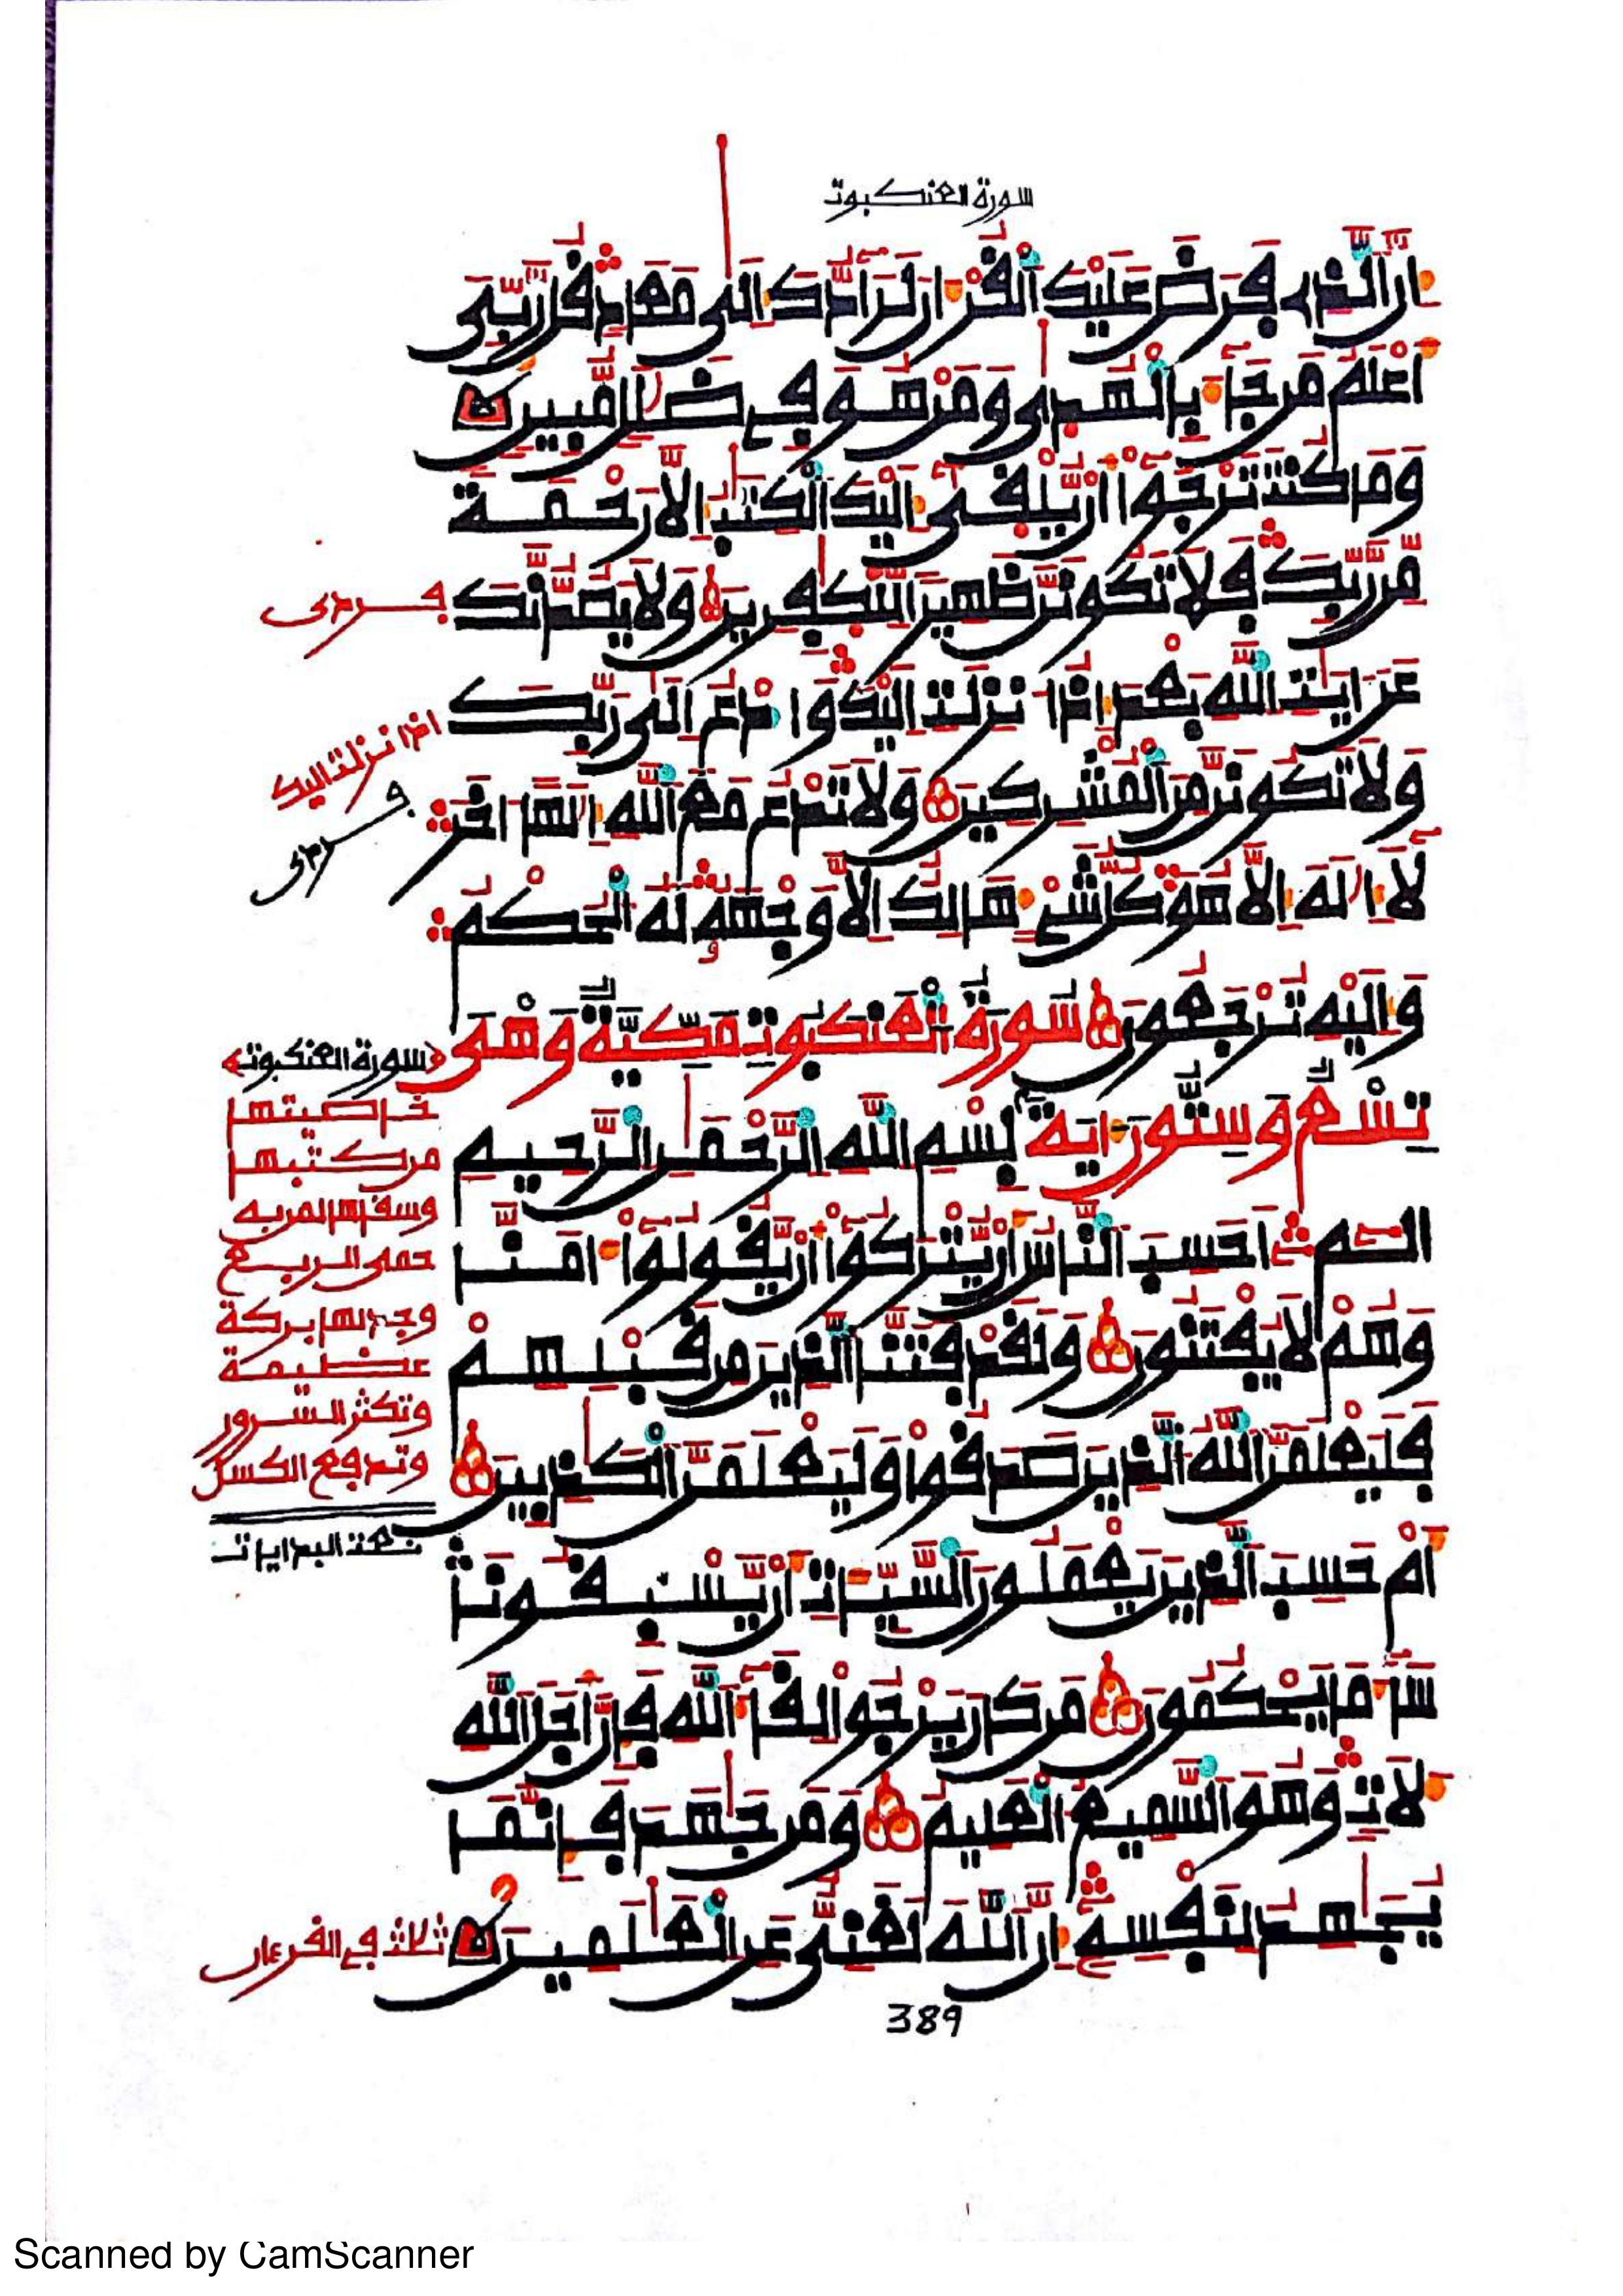 سورة العنكبوت
إن الذي فرض عليك القرءان لرادك إلى معاد قل ربي
أعلم من جاء بالهدى ومن هو في ضلل مبين
وما كنت ترجوا أن يلقى إليك الكتب إلا رحمة
من ربك فلا تكونن ظهيرا للكفرين ولا يصدنك
عن ءايت الله بعد إذ انزلت إليك وادع إلى ربك
ولا تكونن من المشركين ولا تدع مع الله إلها اخر
لا إله إلا هو كل شيء هالك إلا وجهه له الحكم
وإليه ترجعون سورة العنكبوت مكية وهي
تسع وستون ءاية بسم الله الرحمن الرحيم
الم أحسب الناس أن يتركوا أن يقولوا ءامنا
وهم لا يفتنون ولقد فتنا الذين من قبلهم
فليعلمن الله الذين صدقوا وليعلمن الكذبين
أم حسب الذين يعملون السيئات أن يسبقونا
ساء ما يحكمون من كان يرجوا لقاء الله فإن أجل الله
لات وهو السميع العليم ومن جهد فإنما
يجهد لنفسه إن الله لغني عن العلمين
389
اذا نزلت اليك
سورة العنكبوت
خاصيتها
من كتبها
وسقاها لمن به
حمى الربع
وجد لها بركة
عظيمة
وتكثر السرور
وتدفع الكسل
تمت البدايات
ثلاث في القرءان
Scanned by CamScanner